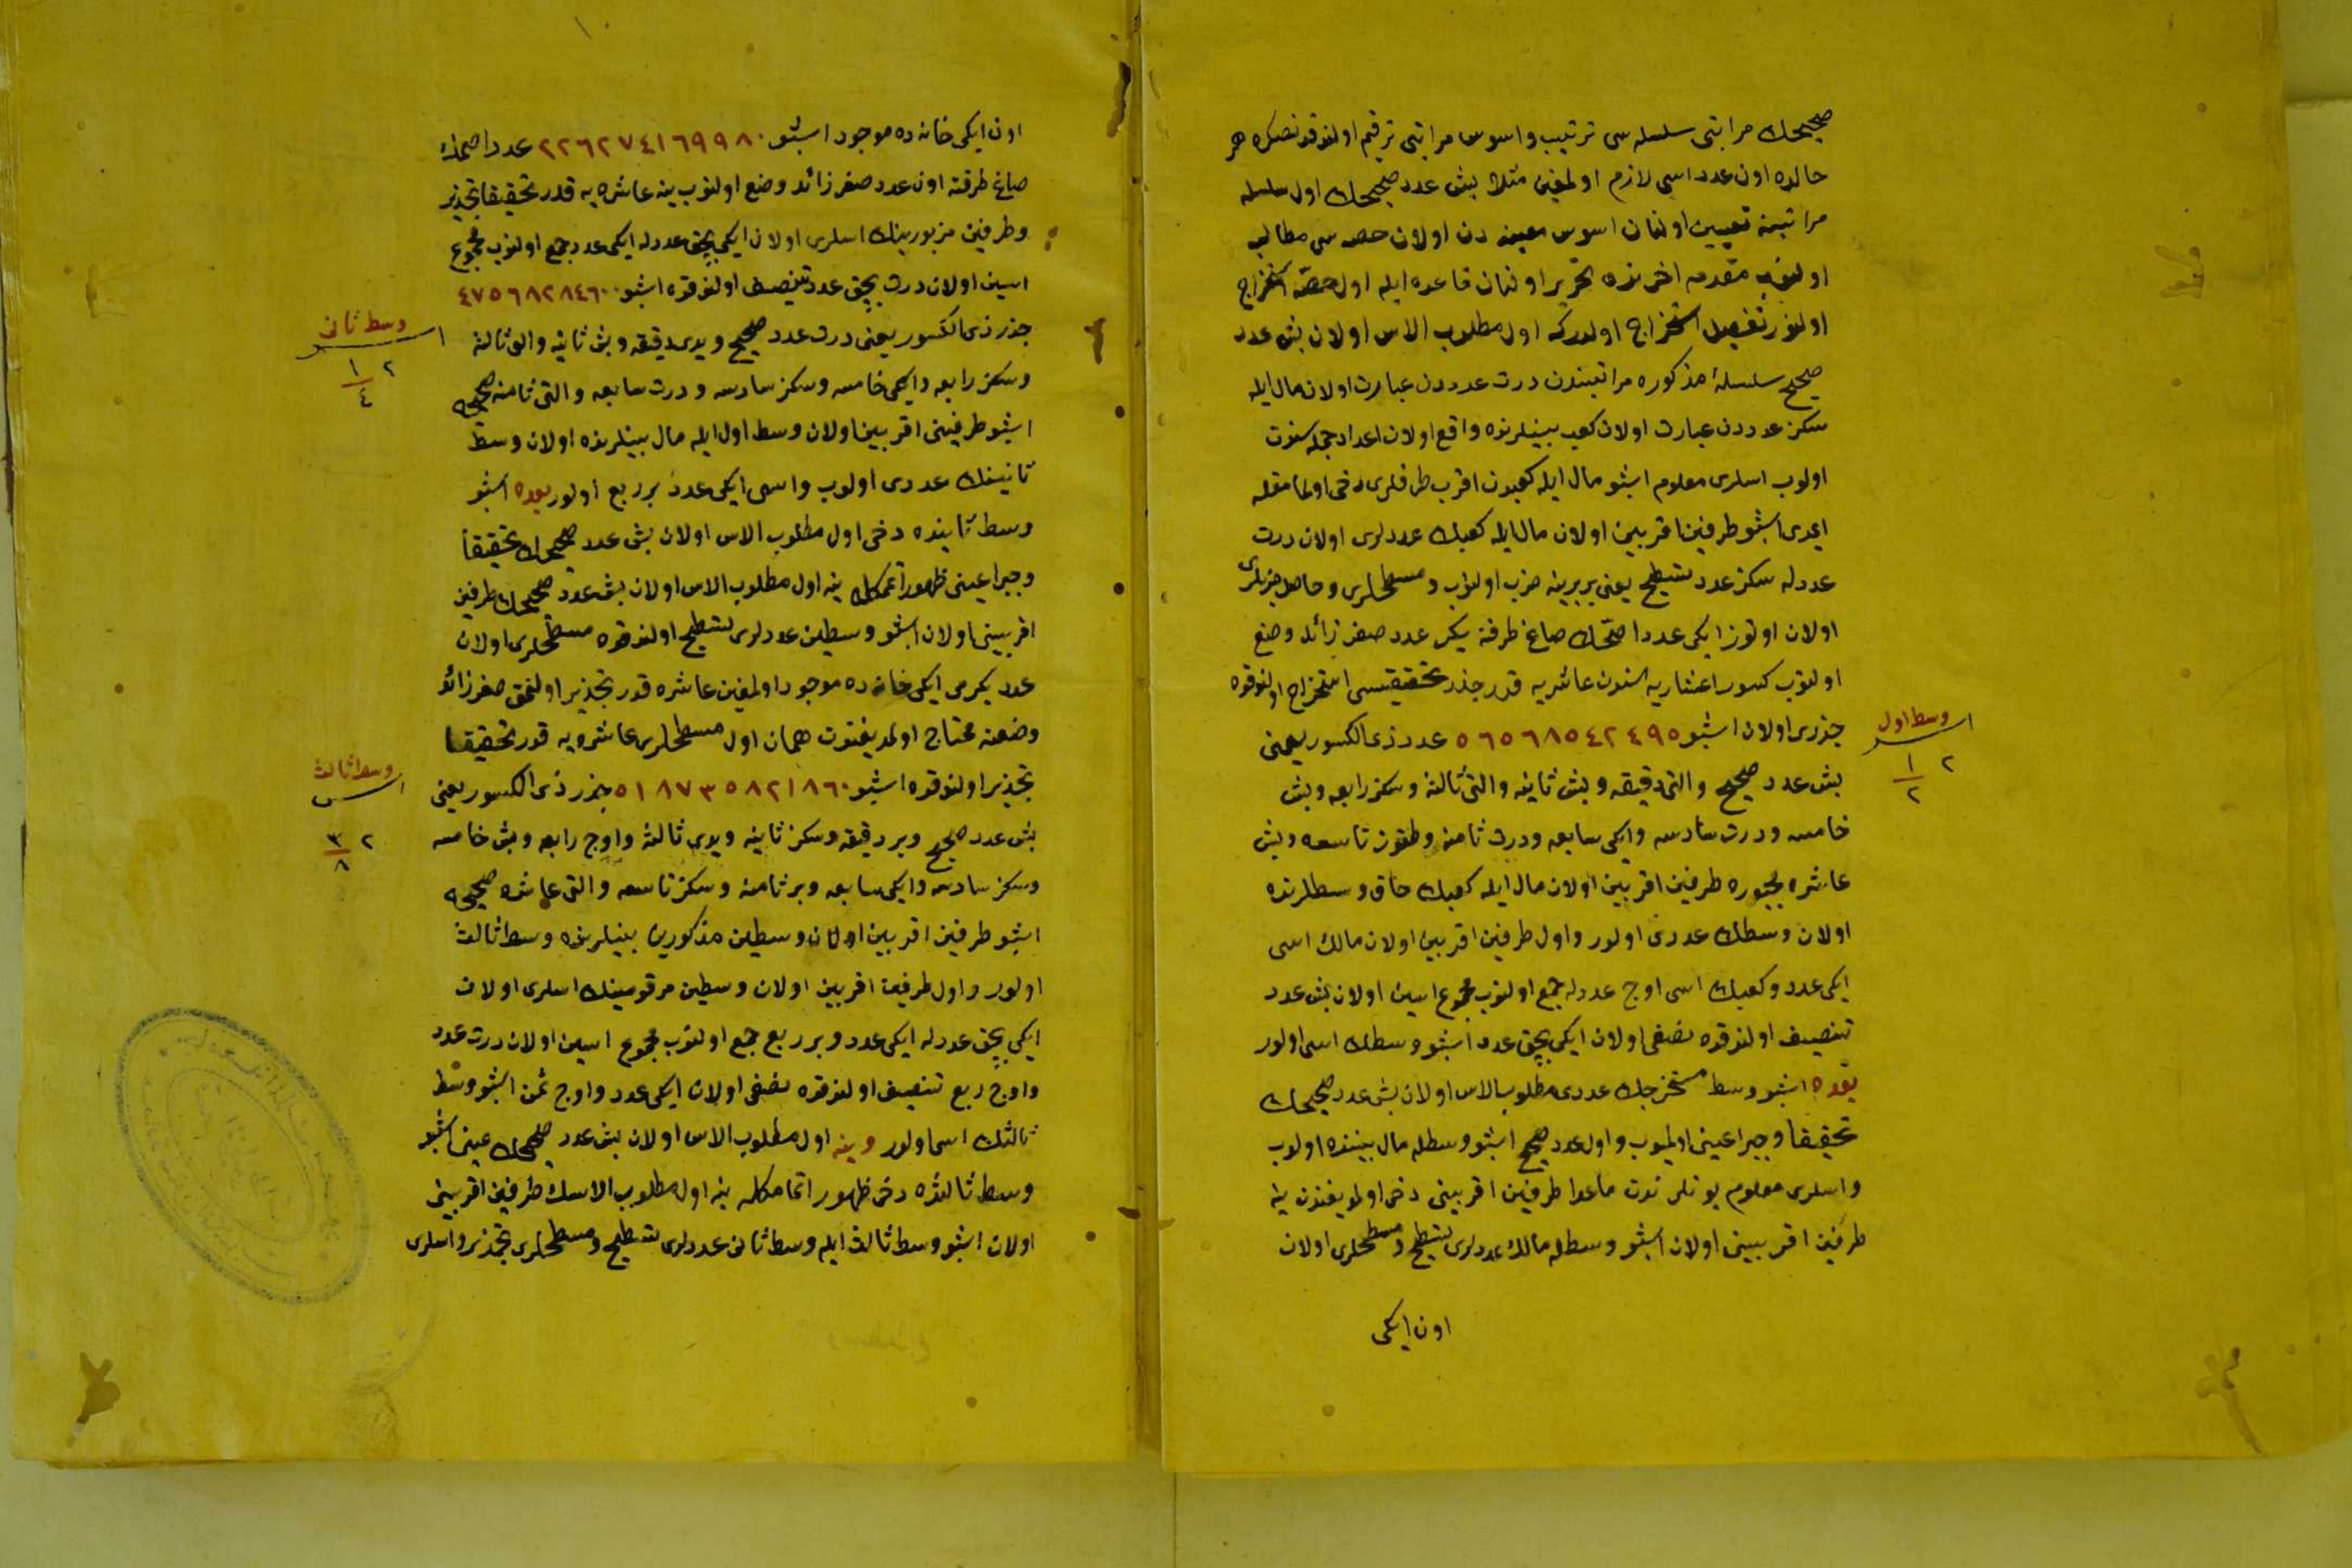 صحيحك مراتبى سلسله سى ترتيب واسوس مراتبى ترقيم اولندقدنصكره هر
حالده اون عدد اسى لازم اولمغين مثلا بش عدد صحيحك اول سلسله
مراتبنه تعيين اولنان اسوس معينه دن اولان حصه سى مطالب
اولنوب مقدمه اخرنده تحرير اولنان قاعده ايله اول حصه استخراج
اولنور تفصيل استخراج اولدركه اول مطلوب الاس اولان بش عدد
صحيح سلسلهٔ مذكوره مراتبندن درت عدددن عبارت اولان مال ايله
سكز عدددن عبارت اولان كعب بينلرنده واقع اولان اعداد جمله سنوت
اولوب اسلرى معلوم اشبو مال ايله كعبدن اقرب طرفلرى دخى اولمامقله
ايمدى اشبو طرفين اقربين اولان مال ايله كعبك عددلرى اولان درت
عددله سكز عدد تسطيح يعنى بربرينه ضرب اولنوب ومسطحلرى وحاصل ضربلرى
اولان اوتوز ايكى عدد اصمّك صاغ طرفنه يكرمى عدد صفر زائد وضع
اولنوب كسور اعشاريه سندن عاشريه قدر جذر تحقيقيسى استخراج اولندقده
جذرى اولان اشبو ٥٦٥٦٨٥٤٢٤٩٥ عدد ذى الكسور يعنى
بش عدد صحيح والتى دقيقه وبش ثانيه والتى ثالثه وسكز رابعه وبش
خامسه ودرت سادسه وايكى سابعه ودرت ثامنه وطقوز تاسعه وبش
عاشره مجبوره طرفين اقربين اولان مال ايله كعبك حاق وسطلرنده
اولان وسطك عددى اولور واول طرفين اقربين اولان مالك اسى
ايكى عدد وكعبك اسى اوج عددله جمع اولنوب مجموع اسين اولان بش عدد
تنصيف اولندقده نصفى اولان ايكى بچق عدد اشبو وسطك اسى اولور
بعده اشبو وسط مستخرجك عددى مطلوب الاس اولان بش عدد صحيحك
تحقيقا وجبرا عينى اولميوب واول عدد صحيح اشبو وسطله مال بيننده اولوب
واسلرى معلوم بونلرندن ماعدا طرفين اقربينى دخى اولمديغندن ينه
طرفين اقربينى اولان اشبو وسطله مالك عددلرى تسطيح ومسطحلرى اولان
اون ايكى
وسط اول
اس
٢ ١/٢
اون ايكى خانه ده موجود اشبو ٢٢٦٢٧٤١٦٩٩٨٠ عدد اصمك
صاغ طرفنه اون عدد صفر زائد وضع اولنوب ينه عاشره يه قدر تحقيقا تجذير
وطرفين مزبورينك اسلرى اولان ايكى بچق عددله ايكى عدد جمع اولنوب مجموع
اسين اولان درت بچق عدد تنصيف اولندقده اشبو ٤٧٥٦٨٢٨٤٦٠٠
جذر ذى الكسور يعنى درت عدد صحيح ويدى دقيقه وبش ثانيه والتى ثالثه
وسكز رابعه وايكى خامسه وسكز سادسه ودرت سابعه والتى ثامنه صحيحه
اشبو طرفينى اقربين اولان وسط اول ايله مال بينلرنده اولان وسط
ثانينك عددى اولوب واسى ايكى عدد بر ربع اولور بعده اشبو
وسط ثانيده دخى اول مطلوب الاس اولان بش عدد صحيحك تحقيقاً
وجبرا عينى ظهور اتممكله ينه اول مطلوب الاس اولان بش عدد صحيحك طرفين
اقربينى اولان اشبو وسطين عددلرى تسطيح اولندقده مسطحلرى اولان
عدد يكرمى ايكى خانه ده موجود اولمغين عاشره قدر تجذير اولنمق صفر زائد
وضعنه محتاج اولمديغندن همان اول مسطحلرى عاشره يه قدر تحقيقا
تجذير اولندقده اشبو ٥١٨٧٣٥٨٢١٨٦٠ جذر ذى الكسور يعنى
بش عدد صحيح وبر دقيقه وسكز ثانيه ويدى ثالثه واوج رابعه وبش خامسه
وسكز سادسه وايكى سابعه وبر ثامنه وسكز تاسعه والتى عاشره صحيحه
اشبو طرفين اقربين اولان وسطين مذكورين بينلرنده وسط ثالث
اولور واول طرفين اقربين اولان وسطين مرقومينك اسلرى اولان
ايكى بچق عددله ايكى عدد وبر ربع جمع اولنوب مجموع اسين اولان درت عدد
واوج ربع تنصيف اولندقده نصفى اولان ايكى عدد واوج ثمن اشبو وسط
ثالثك اسى اولور وينه اول مطلوب الاس اولان بش عدد صحيحك عينى اشبو
وسط ثالثده دخى ظهور اتمامكله ينه اول مطلوب الاسك طرفين اقربينى
اولان اشبو وسط ثالث ايله وسط ثانى عددلرى تسطيح ومسطحلرى تجذير واسلرى
وسط ثانى
اس
٢ ١/٤
وسط ثالث
اس
٢ ٣/٨